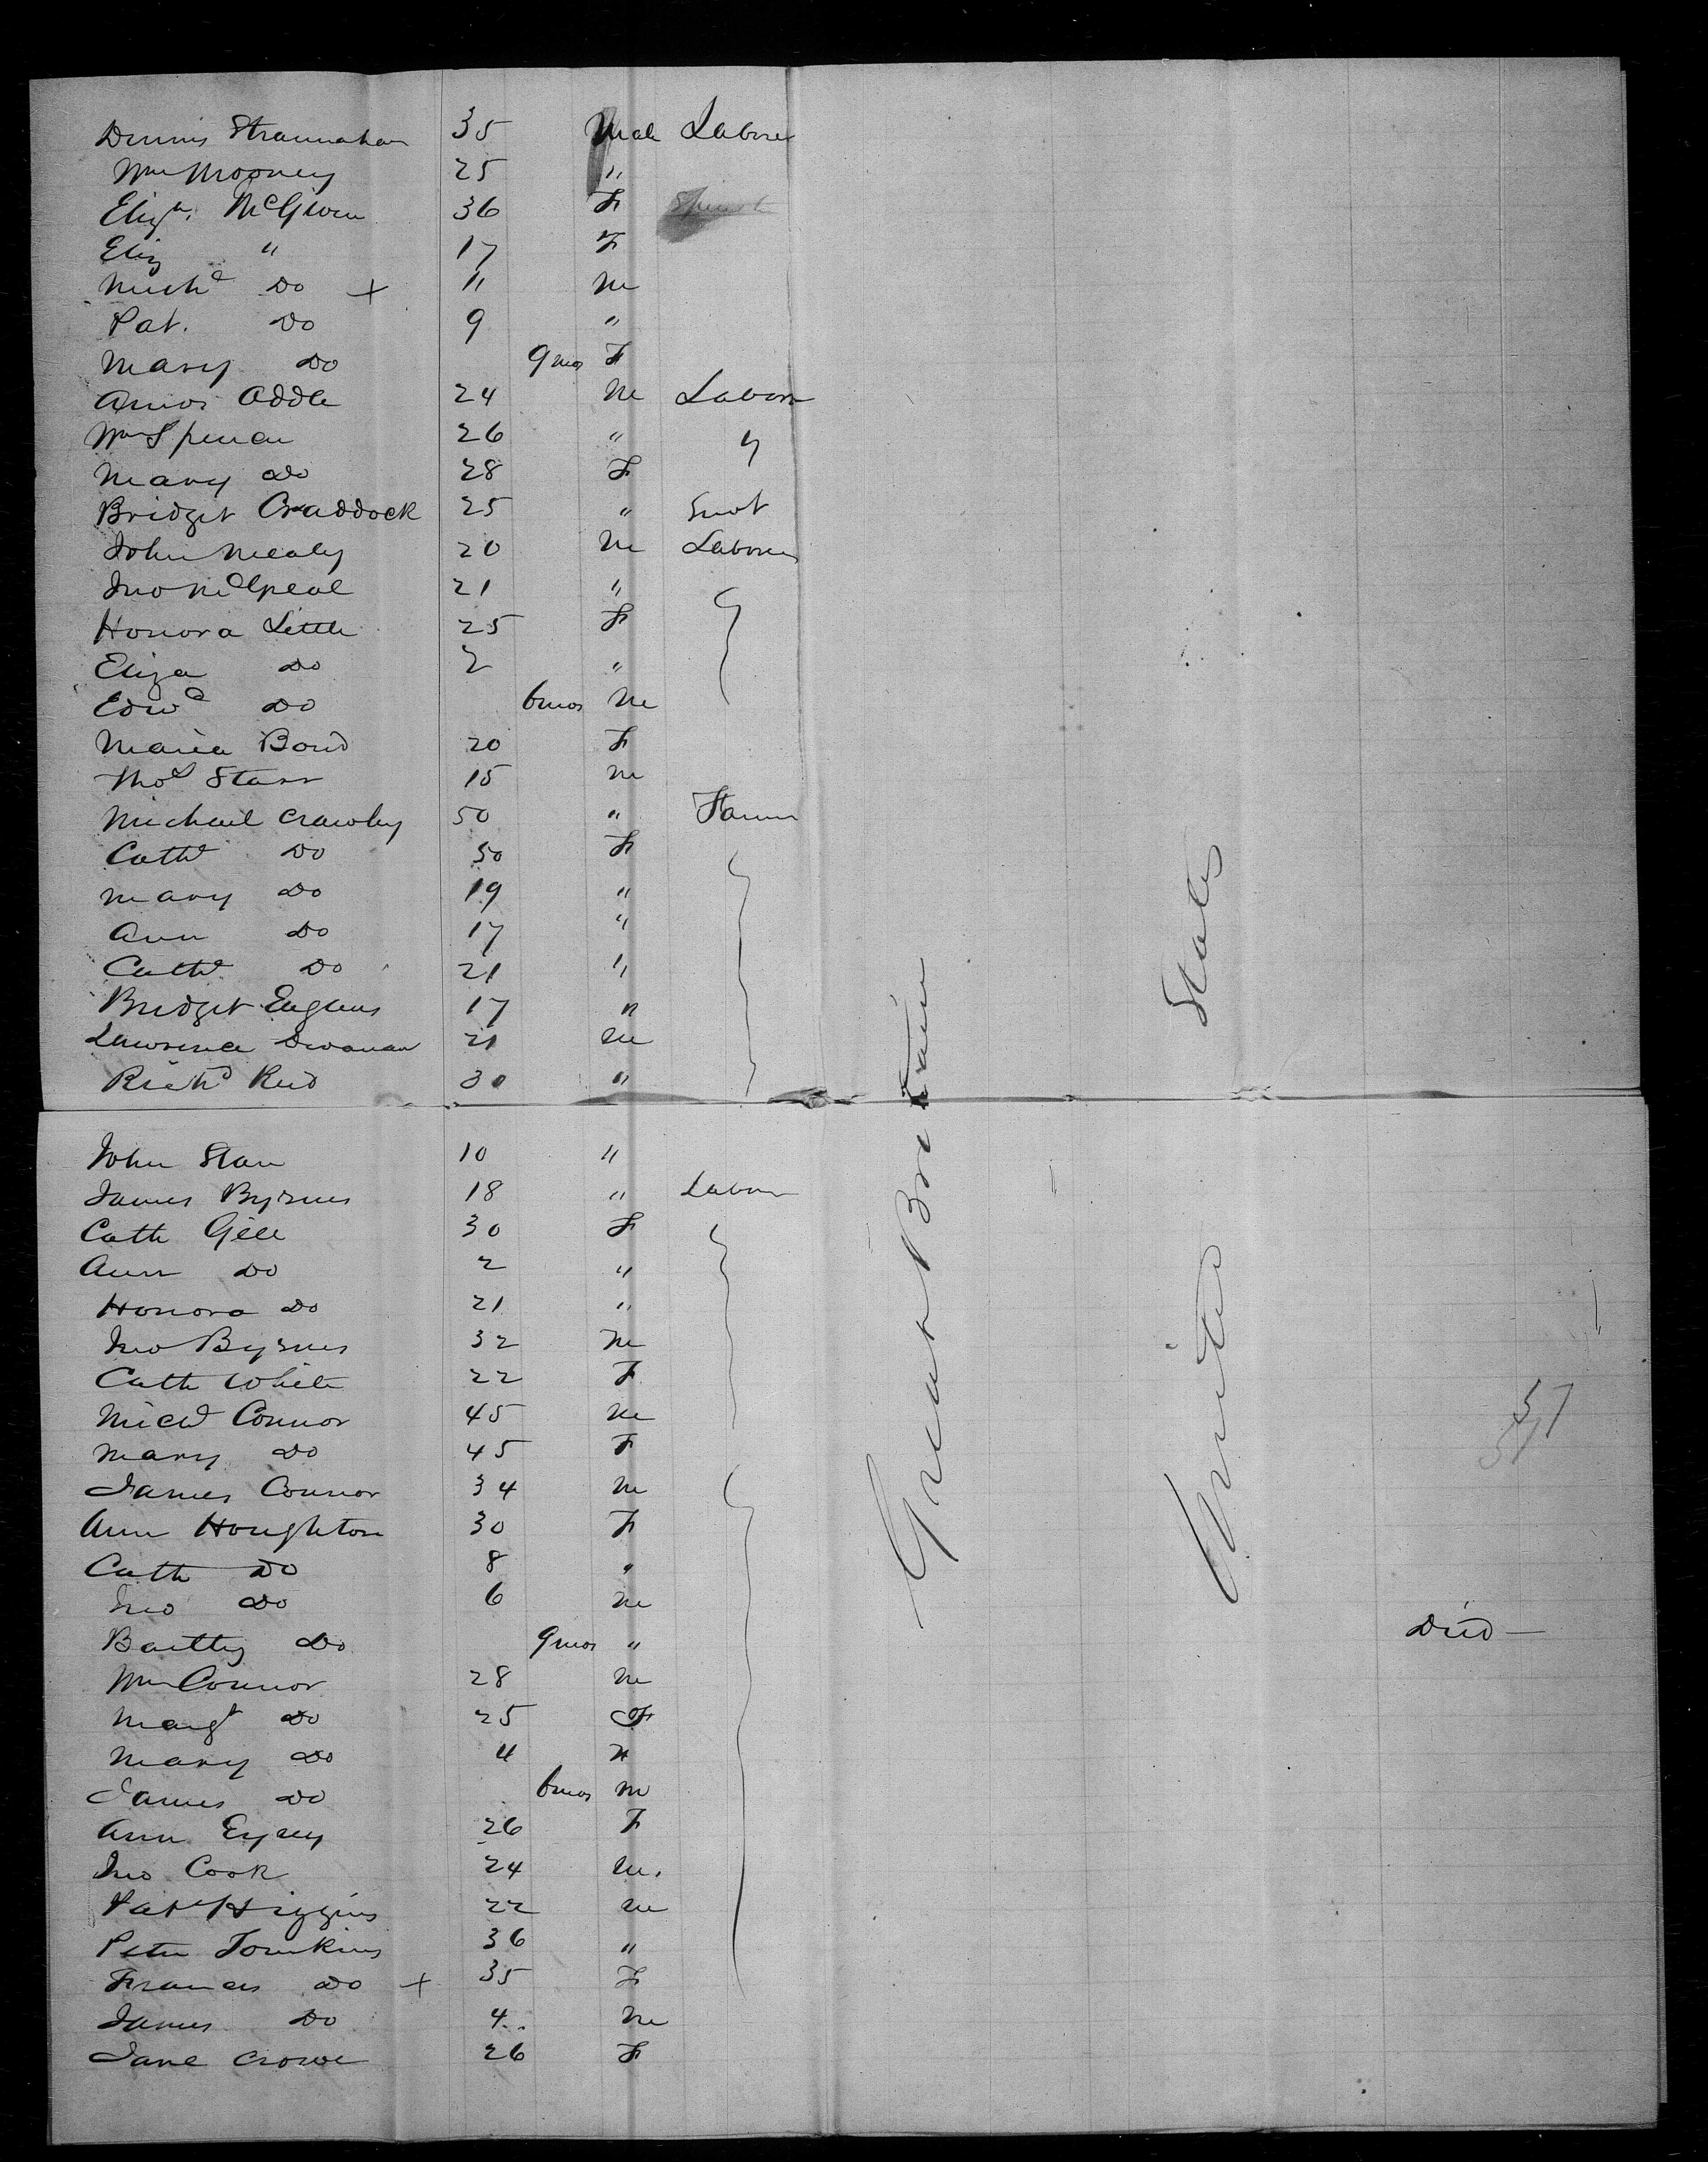 Dennis Strannahan 35 Male Laborer
Wm Mooney 25 "
Elizh. McGiven 36 F
Eliz " 17 F
Michl Do + 11 M
Pat. Do 9 "
Mary Do 9 mos F
Amos Addle 24 M Laborer
Wm Spencer 26 " "
Mary Do 28 F
Bridget Craddock 25 "
John Mealy 20 M Laborer
Jno 21 "
Honora Little 25 F
Eliza Do 2 "
Edwd Do 6 mos M
Maria Bond 20 F
Thos Starr 15 M
Michael Crawley 50 " Farmer
Cath Do 50 F
Mary Do 19 "
Ann Do 17 "
Cath Do 21 "
Bridget 17 "
Lawrence 21 M
Richd Reid 30 "
John 10 "
James Byrnes 18 " Labor
Cath Gill 30 F
Ann Do 2 "
Honora Do 21 "
Jno Byrnes 32 M
Cath White 22 F
Micl Connor 45 M
Mary Do 45 F
James Connor 34 M
Ann Houghton 30 F
Cath Do 8 "
Jno Do 6 M
Bartty Do 9 mos " Died —
Wm Connor 28 M
Margt Do 25 F
Mary Do 4 "
James Do 6 mos M
Ann 26 F
Jno Cook 24 M.
Patk Higgins 22 M
Peter Tomkins 36 "
Frances Do + 35 F
James Do 4 M
Jane Crowe 26 F
Great Britain
United States
57